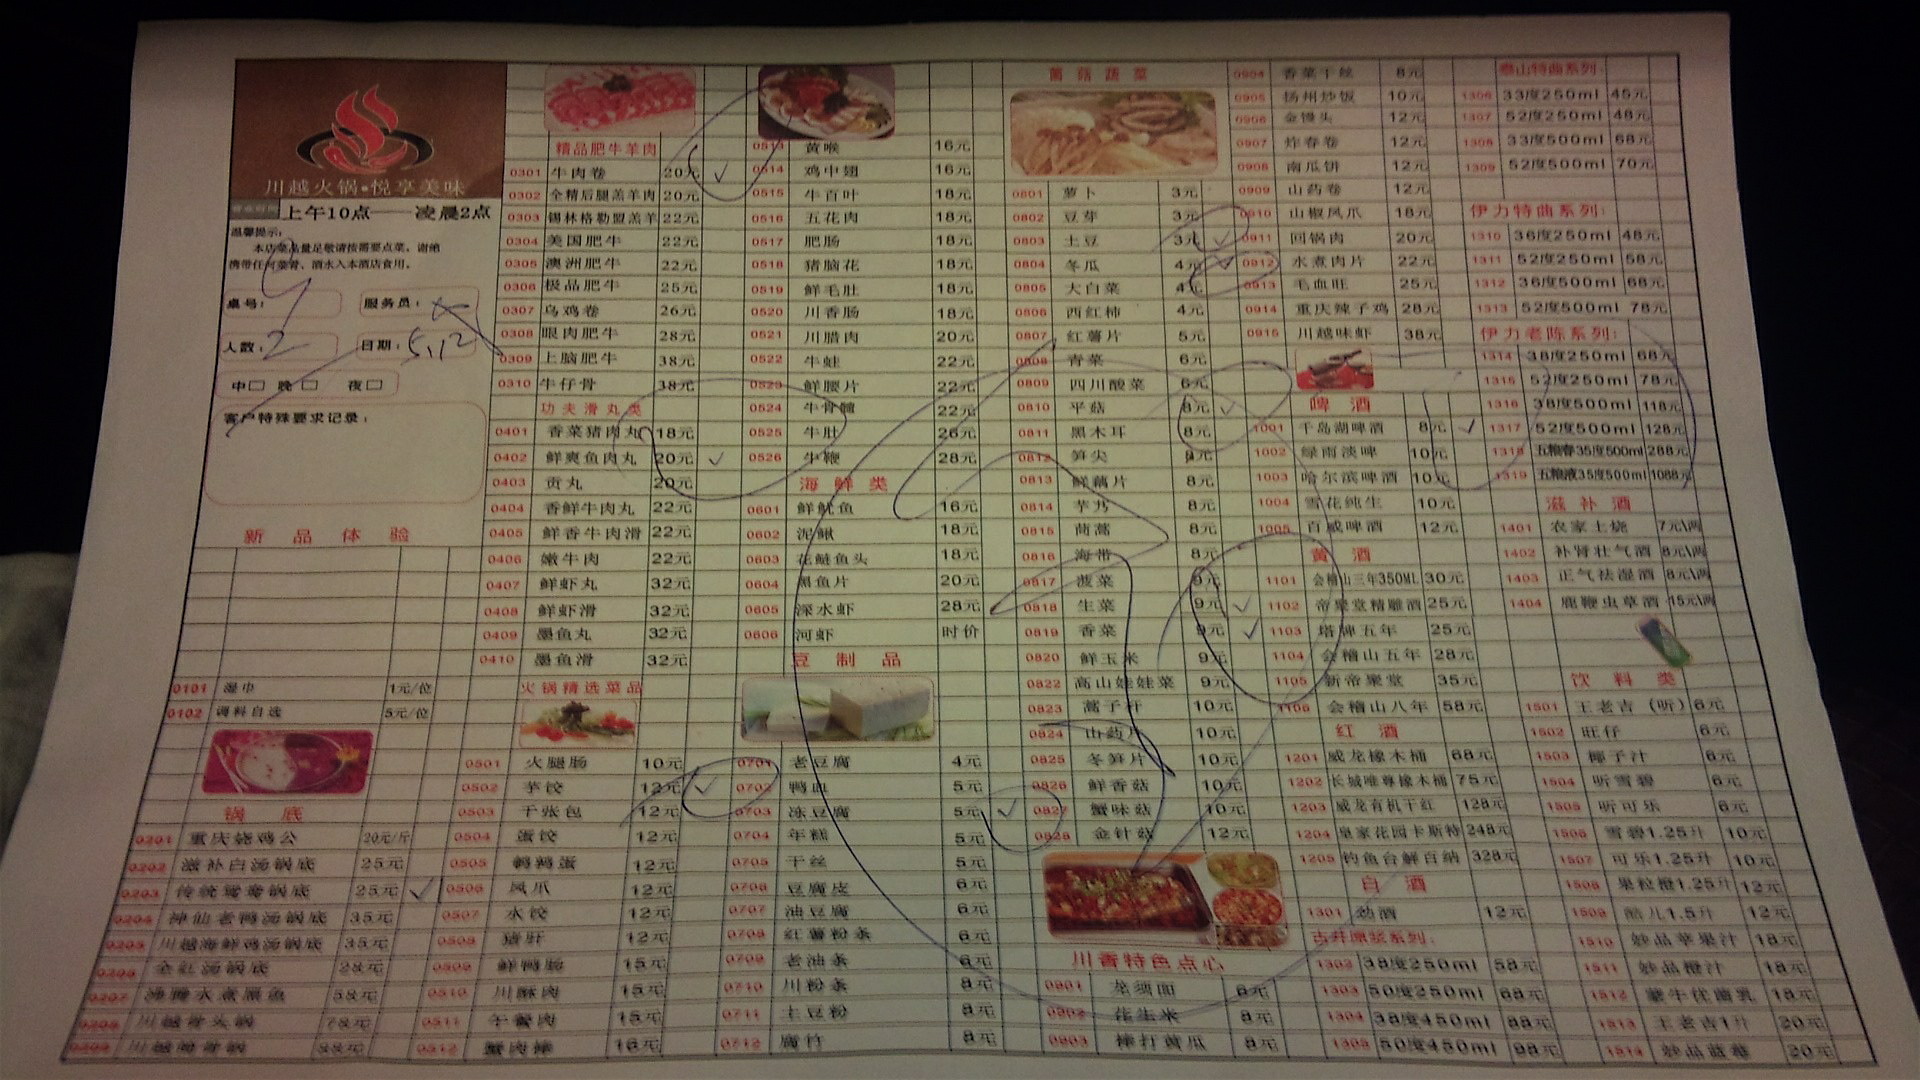 川越火锅•悦享美味
上午10点——凌晨2点
温馨提示:
本店菜品量足敬请按需要点菜。谢绝
携带任何菜肴、酒水入本酒店食用。
桌号:
服务员:
人数:2
日期:5.12
中□ 晚□ 夜□
客户特殊要求记录:
新品体验
0101 湿巾 1元/位
0102 调料自选 5元/位
锅底
0201 重庆烧鸡公 20元/斤
0202 滋补白汤锅底 25元
0203 传统鸳鸯锅底 25元 ✓
0204 神仙老鸭汤锅底 35元
0205 川越海鲜鸡汤锅底 35元
0206 全红汤锅底 28元
0207 沸腾水煮黑鱼 58元
0208 川越骨头锅 78元
精品肥牛羊肉
0301 牛肉卷 20元 ✓
0302 全精后腿羔羊肉 20元
0303 锡林格勒盟羔羊 22元
0304 美国肥牛 22元
0305 澳洲肥牛 22元
0306 极品肥牛 25元
0307 乌鸡卷 26元
0308 眼肉肥牛 28元
0309 上脑肥牛 38元
0310 牛仔骨 38元
功夫滑丸类
0401 香菜猪肉丸 18元
0402 鲜爽鱼肉丸 20元 ✓
0403 贡丸 20元
0404 香鲜牛肉丸 22元
0405 鲜香牛肉滑 22元
0406 嫩牛肉 22元
0407 鲜虾丸 32元
0408 鲜虾滑 32元
0409 墨鱼丸 32元
0410 墨鱼滑 32元
火锅精选菜品
0501 火腿肠 10元
0502 芋饺 12元 ✓
0503 千张包 12元
0504 蛋饺 12元
0505 鹌鹑蛋 12元
0506 凤爪 12元
0507 水饺 12元
0508 猪肝 12元
0509 鲜鸭肠 15元
0510 川酥肉 15元
0511 午餐肉 15元
0512 蟹肉棒 16元
0513 黄喉 16元
0514 鸡中翅 16元
0515 牛百叶 18元
0516 五花肉 18元
0517 肥肠 18元
0518 猪脑花 18元
0519 鲜毛肚 18元
0520 川香肠 18元
0521 川腊肉 20元
0522 牛蛙 22元
0523 鲜腰片 22元
0524 牛骨髓 22元
0525 牛肚 26元
0526 牛鞭 28元
海鲜类
0601 鲜鱿鱼 16元
0602 泥鳅 18元
0603 花鲢鱼头 18元
0604 黑鱼片 20元
0605 深水虾 28元
0606 河虾 时价
豆制品
0701 老豆腐 4元
0702 鸭血 5元
0703 冻豆腐 5元 ✓
0704 年糕 5元
0705 干丝 5元
0706 豆腐皮 6元
0707 油豆腐 6元
0708 红薯粉条 6元
0709 老油条 6元
0710 川粉条 8元
0711 土豆粉 8元
0712 腐竹 8元
菌菇蔬菜
0801 萝卜 3元
0802 豆芽 3元
0803 土豆 3元 ✓
0804 冬瓜 4元 ✓
0805 大白菜 4元
0806 西红柿 4元
0807 红薯片 5元
0808 青菜 6元
0809 四川酸菜 6元
0810 平菇 8元 ✓
0811 黑木耳 8元
0812 笋尖 8元
0813 鲜藕片 8元
0814 芋艿 8元
0815 茼蒿 8元
0816 海带 8元
0817 菠菜 9元
0818 生菜 9元 ✓
0819 香菜 9元 ✓
0820 鲜玉米 9元
0822 高山娃娃菜 9元
0823 蒿子杆 10元
0824 山药片 10元
0825 冬笋片 10元
0826 鲜香菇 10元
0827 蟹味菇 10元
0828 金针菇 12元
川香特色点心
0901 龙须面 6元
0902 花生米 8元
0903 棒打黄瓜 8元
0904 香菜干丝 8元
0905 扬州炒饭 10元
0906 金馒头 12元
0907 炸春卷 12元
0908 南瓜饼 12元
0909 山药卷 12元
0910 山椒凤爪 18元
0911 回锅肉 20元
0912 水煮肉片 22元
0913 毛血旺 25元
0914 重庆辣子鸡 28元
0915 川越味虾 38元
啤酒
1001 千岛湖啤酒 8元 ✓
1002 绿雨淡啤 10元
1003 哈尔滨啤酒 10元
1004 雪花纯生 10元
1005 百威啤酒 12元
黄酒
1101 会稽山三年350ML 30元
1102 帝聚堂精雕酒 25元
1103 塔牌五年 25元
1104 会稽山五年 28元
1105 新帝聚堂 35元
1106 会稽山八年 58元
红酒
1201 威龙橡木桶 68元
1202 长城唯尊橡木桶 75元
1203 威龙有机干红 128元
1204 皇家花园卡斯特 248元
1205 钓鱼台解百纳 328元
白酒
1301 劲酒 12元
古井原浆系列:
1302 38度250ml 58元
1303 50度250ml 68元
1304 38度450ml 88元
1305 50度450ml 98元
泰山特曲系列:
1306 33度250ml 45元
1307 52度250ml 48元
1308 33度500ml 68元
1309 52度500ml 70元
伊力特曲系列:
1310 36度250ml 48元
1311 52度250ml 58元
1312 36度500ml 68元
1313 52度500ml 78元
伊力老陈系列:
1314 38度250ml 68元
1315 52度250ml 78元
1316 38度500ml 118元
1317 52度500ml 128元
1318 五粮春35度500ml 288元
1319 五粮液35度500ml 1088元
滋补酒
1401 农家土烧 7元\两
1402 补肾壮气酒 8元\两
1403 正气祛湿酒 8元\两
1404 鹿鞭虫草酒 15元\两
饮料类
1501 王老吉(听) 6元
1502 旺仔 6元
1503 椰子汁 6元
1504 听雪碧 6元
1505 听可乐 6元
1506 雪碧1.25升 10元
1507 可乐1.25升 10元
1508 果粒橙1.25升 12元
1509 酷儿1.5升 12元
1510 妙品苹果汁 18元
1511 妙品橙汁 18元
1512 蒙牛优菌乳 18元
1513 王老吉1升 20元
1514 妙品蓝莓 20元